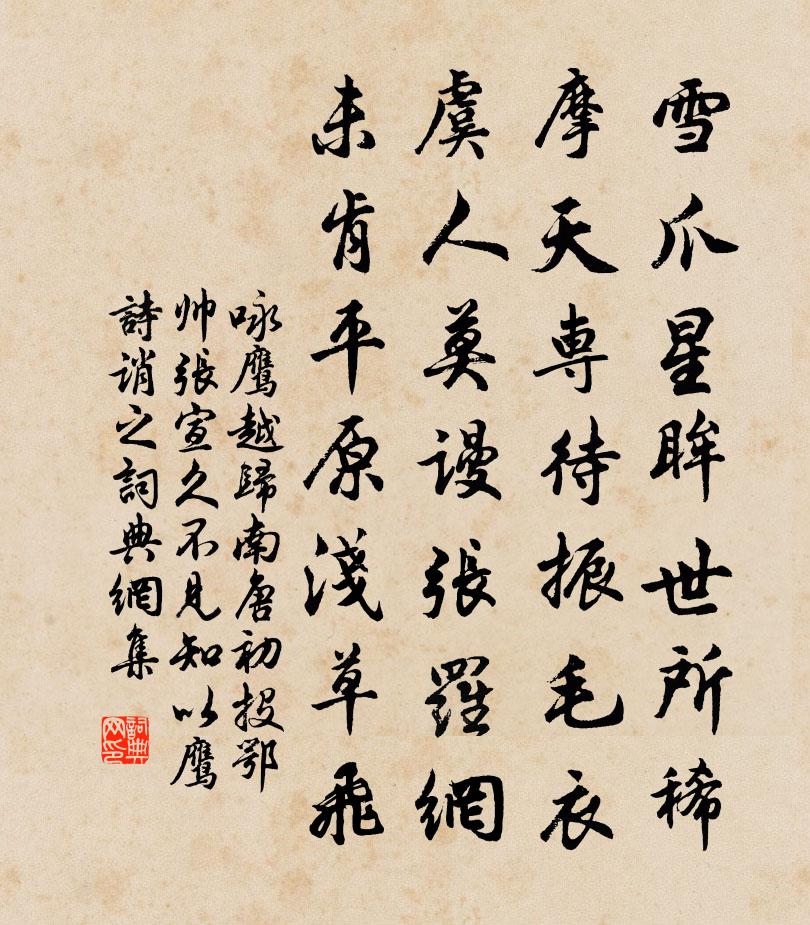 雪爪星眸世所稀
摩天專待振毛衣
虞人莫謾張羅網
未肯平原淺草飛
咏鹰越歸南唐初投鄂
帅張宣久不見知以鹰
詩诮之詞典網集
詞典网印